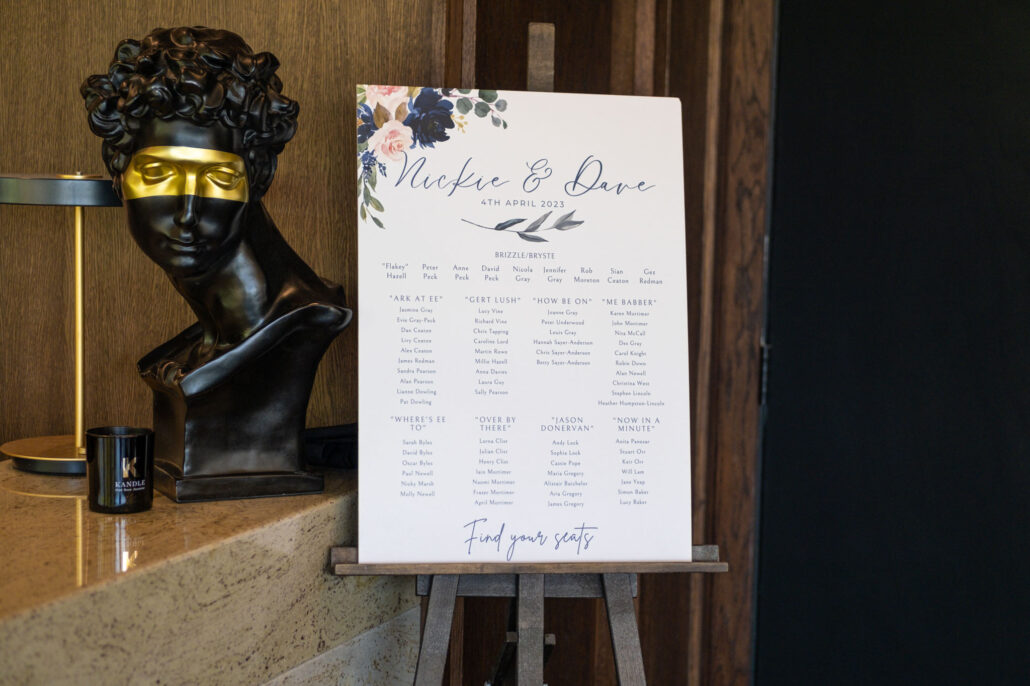 Nickie & Dave
4TH APRIL 2023
BRIZZLE/BRYSTE
"Flakey" Hazell
Peter Peck
Anne Peck
David Peck
Nicola Gray
Jennifer Gray
Rob Moreton
Sian Coaton
Gez Redman
"ARK AT EE"
Jasmine Gray
Evie Gray-Peck
Dan Coaton
Livy Coaton
Alex Coaton
James Redman
Sandra Pearson
Alan Pearson
Lianne Dowling
Pat Dowling
"GERT LUSH"
Lucy Vine
Richard Vine
Chris Topping
Caroline Lord
Martin Rowe
Millie Hazell
Anna Davies
Laura Guy
Sally Pearson
"HOW BE ON"
Joanne Gray
Peter Underwood
Louis Gray
Hannah Sayer-Anderson
Chris Sayer-Anderson
Betsy Sayer-Anderson
"ME BABBER"
Karen Mortimer
John Mortimer
Nita McCall
Des Gray
Carol Knight
Robin Down
Alan Newell
Christina West
Stephen Lincoln
Heather Humpston-Lincoln
"WHERE'S EE
TO"
Sarah Byles
David Byles
Oscar Byles
Paul Newell
Nicky Marsh
Molly Newell
"OVER BY
THERE"
Lorna Clist
Julian Clist
Henry Clist
Iain Mortimer
Naomi Mortimer
Fraser Mortimer
April Mortimer
"JASON
DONERVAN"
Andy Lock
Sophie Lock
Cassie Pope
Maria Gregory
Alistair Batchelor
Aria Gregory
James Gregory
"NOW IN A
MINUTE"
Anita Panesar
Stuart Orr
Keir Orr
Will Lam
Jane Yeap
Simon Baker
Lucy Baker
Find your seats
K
KANDLE